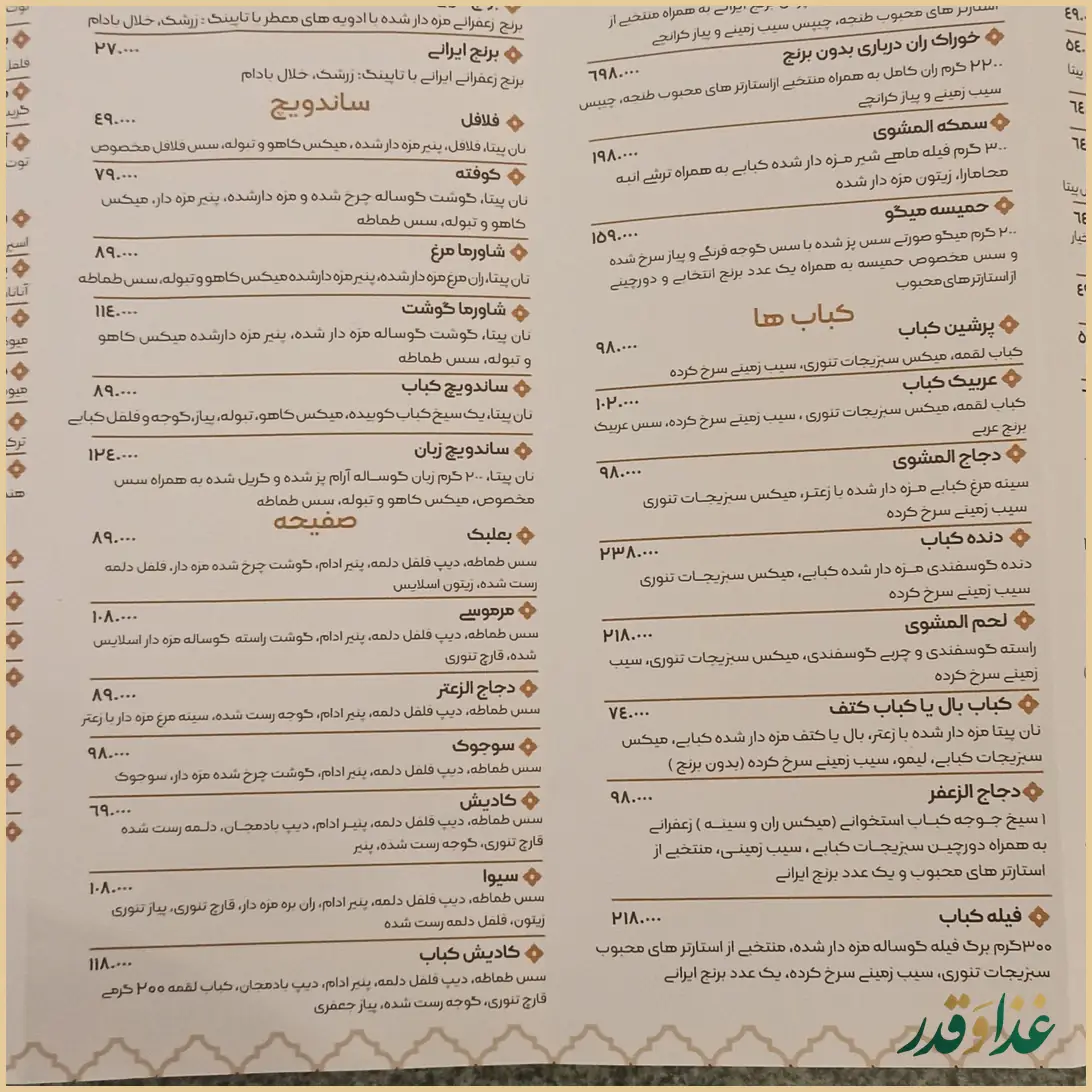 استارتر های محبوب طنجه، چیپس سیب زمینی و پیاز کرانچی
خوراک ران درباری بدون برنج
۶۹۸.۰۰۰
۲۲۰۰ گرم ران کامل به همراه منتخبی ازاستارتر های محبوب طنجه، چیپس
سیب زمینی و پیاز کرانچی
سمکه المشوی
۱۹۸.۰۰۰
۳۰۰ گرم فیله ماهی شیر مـزه دار شده کبابی به همراه ترشی انبه
محامارا، زیتون مزه دار شده
حمیسه میگو
۱۵۹.۰۰۰
۲۰۰ گرم میگو صورتی سس پز شده با سس گوجه فرنگی و پیاز سرخ شده
و سس مخصوص حمیسه به همراه یک عدد برنج انتخابی و دورچینی
ازاستارترهای محبوب
کباب ها
پرشین کباب
۹۸.۰۰۰
کباب لقمه، میکس سبزیجات تنوری، سیب زمینی سرخ کرده
عربیک کباب
۱۰۲.۰۰۰
کباب لقمه، میکس سبزیجات تنوری ، سیب زمینی سرخ کرده، سس عربیک
برنج عربی
دجاج المشوی
۹۸.۰۰۰
سینه مرغ کبابی مـزه دار شده با زعتـر، میکس سبزیجـات تنوری
سیب زمینی سرخ کرده
دنده کباب
۲۳۸.۰۰۰
دنده گوسفندی مـزه دار شده کبابی، میکس سبزیجـات تنوری
سیب زمینی سرخ کرده
لحم المشوی
۲۱۸.۰۰۰
راسته گوسفندی و چربی گوسفندی، میکس سبزیجات تنوری، سیب
زمینی سرخ کرده
کباب بال یا کباب کتف
۷۴.۰۰۰
نان پیتا مزه دار شده با زعتر، بال یا کتف مزه دار شده کبابی، میکس
سبزیجات کبابی ، لیمو، سیب زمینی سرخ کرده (بدون برنج )
دجاج الزعفر
۹۸.۰۰۰
۱ سیخ جـوجه کبـاب استخوانی (میکس ران و سینـه ) زعفرانی
به همراه دورچیـن سبزیجـات کبابی ، سیب زمینـی، منتخبی از
استارتر های محبوب و یک عدد برنج ایرانی
فیله کباب
۲۱۸.۰۰۰
۳۰۰گرم برگ فیله گوساله مزه دار شده، منتخبی از استارتر های محبوب
سبزیجات تنوری، سیب زمینی سرخ کرده، یک عدد برنج ایرانی
برنج زعفرانی مزه دار شده با ادویه های معطر با تاپینگ : زرشک، خلال بادام
برنج ایرانی
۲۷.۰۰۰
برنج زعفرانی ایرانی با تاپینگ: زرشک، خلال بادام
ساندویچ
فلافل
۴۹.۰۰۰
نان پیتا، فلافل، پنیر مزه دار شده ، میکس کاهو و تبوله، سس فلافل مخصوص
کوفته
۷۹.۰۰۰
نان پیتا، گوشت گوساله چرخ شده و مزه دارشده، پنیر مزه دار، میکس
کاهو و تبوله، سس طماطه
شاورما مرغ
۸۹.۰۰۰
نان پیتا، ران مرغ مزه دار شده، پنیر مزه دارشده میکس کاهو و تبوله، سس طماطه
شاورما گوشت
۱۱۴.۰۰۰
نان پیتا، گوشت گوساله مزه دار شده، پنیر مزه دارشده میکس کاهو
و تبوله، سس طماطه
ساندویچ کباب
۸۹.۰۰۰
نان پیتا، یک سیخ کباب کوبیده، میکس کاهو، تبوله، پیاز،گوجه و فلفل کبابی
ساندویچ زبان
۱۲۴.۰۰۰
نان پیتا، ۲۰۰ گرم زبان گوسـاله آرام پز شده و گریل شده به همراه سس
مخصوص، میکس کاهو و تبوله، سس طماطه
صفیحه
بعلبک
۸۹.۰۰۰
سس طماطه، دیپ فلفل دلمه، پنیر ادام، گوشت چرخ شده مزه دار، فلفل دلمه
رست شده، زیتون اسلایس
مرموسی
۱۰۸.۰۰۰
سس طماطه، دیپ فلفل دلمه، پنیر ادام، گوشت راسته گوساله مزه دار اسلایس
شده، قارچ تنوری
دجاج الزعتر
۸۹.۰۰۰
سس طماطه، دیپ فلفل دلمه، پنیر ادام، گوجه رست شده، سینه مرغ مزه دار با زعتر
سوجوک
۹۸.۰۰۰
سس طماطه، دیپ فلفل دلمه، پنیر ادام، گوشت چرخ شده مزه دار، سوجوک
کادیش
۶۹.۰۰۰
سس طماطه، دیپ فلفل دلمه، پنیـر ادام، دیپ بادمجـان، دلـمه رست شده
قارچ تنوری، گوجه رست شده، پنیر
سیوا
۱۰۸.۰۰۰
سس طماطه، دیپ فلفل دلمه، پنیر ادام، ران بره مزه دار، قارچ تنوری، پیاز تنوری
زیتون، فلفل دلمه رست شده
کادیش کباب
۱۱۸.۰۰۰
سس طماطه، دیپ فلفل دلمه، پنیر ادام، دیپ بادمجان، کباب لقمه ۲۰۰ گرمی
قارچ تنوری، گوجه رست شده، پیاز جعفری
غذا و قدر